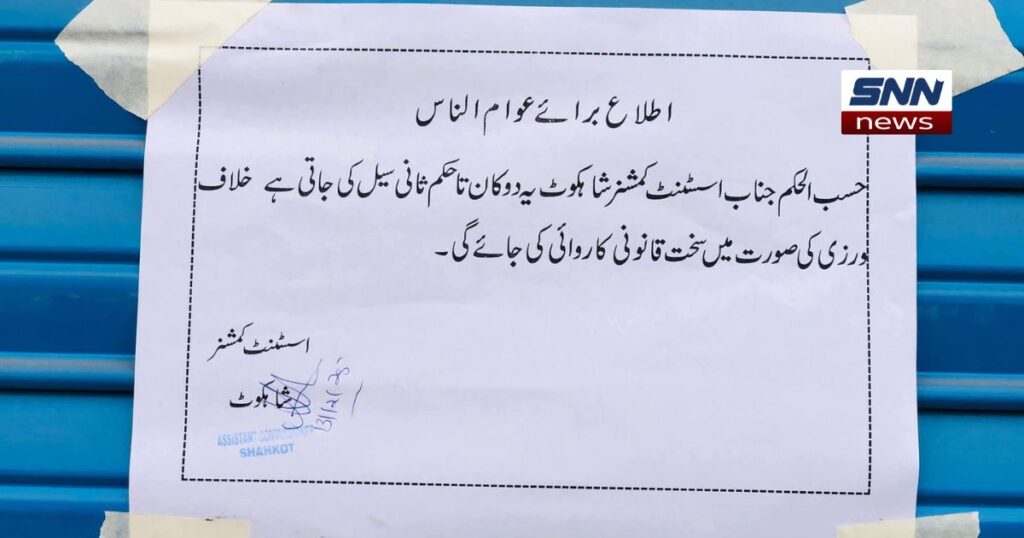 SNN
news
اطلاع برائے عوام الناس
حسب الحکم جناب اسسٹنٹ کمشنر شاہکوٹ یہ دوکان تا حکم ثانی سیل کی جاتی ہے خلاف
ورزی کی صورت میں سخت قانونی کاروائی کی جائے گی۔
اسسٹنٹ کمشنر
شاہکوٹ
ASSISTANT COMMISSIONER
SHAHKOT